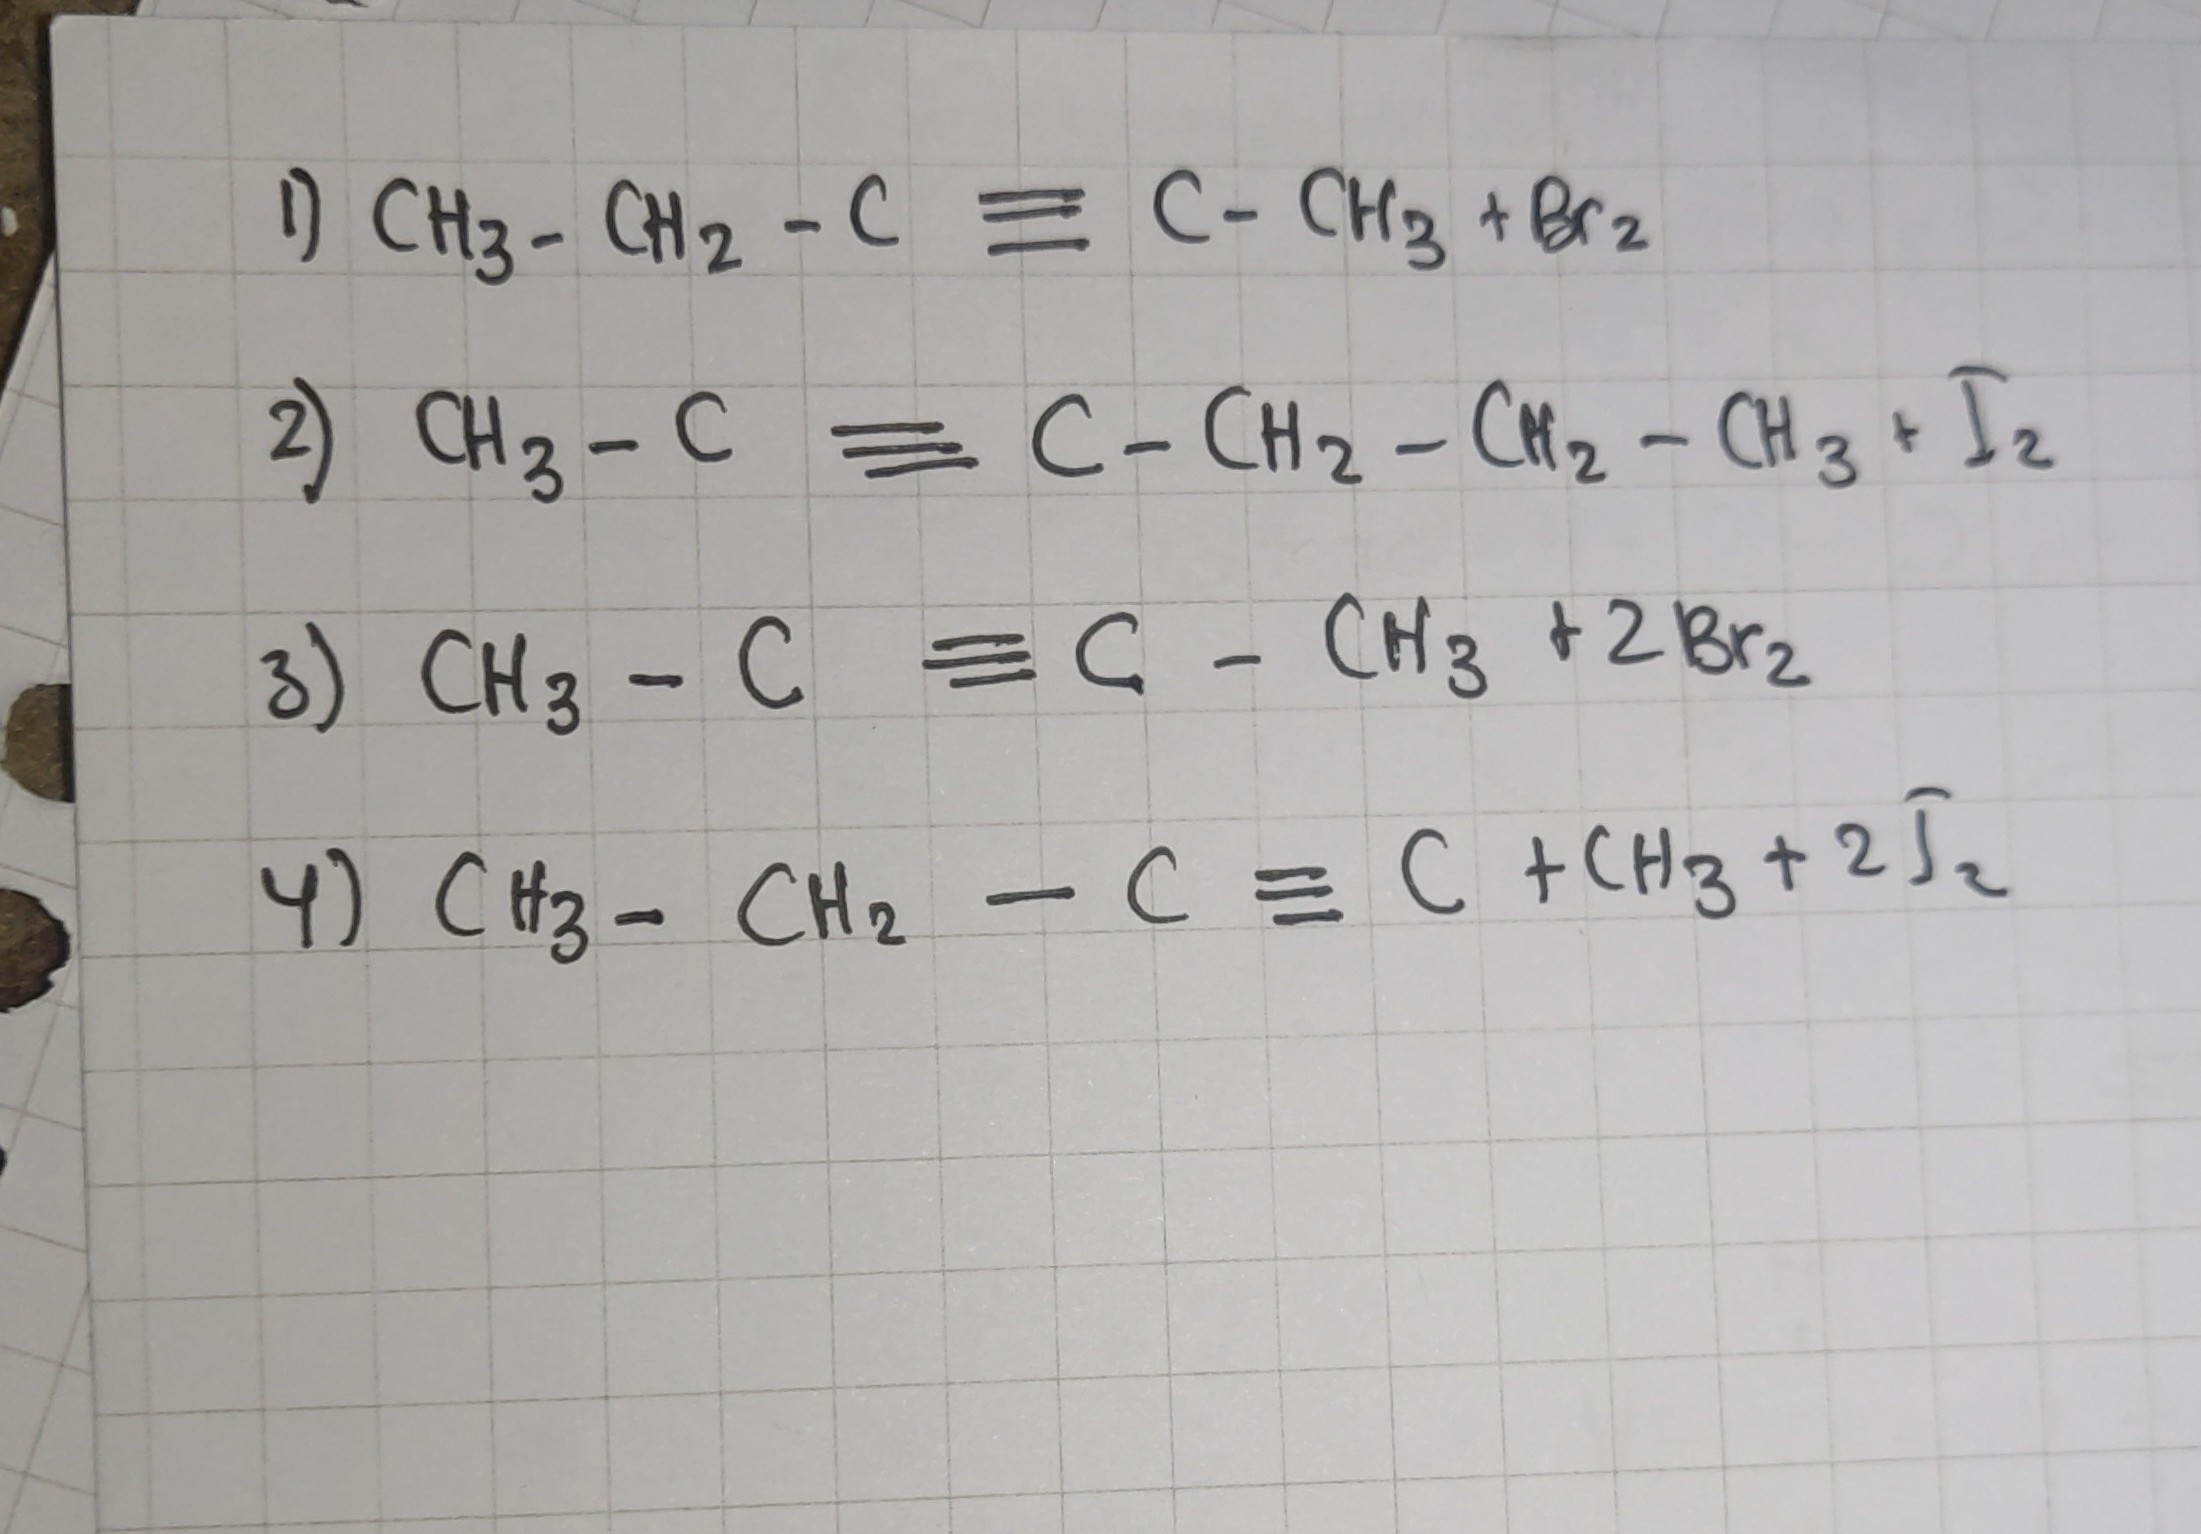 1) CH3 - CH2 - C ≡ C - CH3 + Br2
2) CH3 - C ≡ C - CH2 - CH2 - CH3 + I2
3) CH3 - C ≡ C - CH3 + 2Br2
4) CH3 - CH2 - C ≡ C + CH3 + 2I2